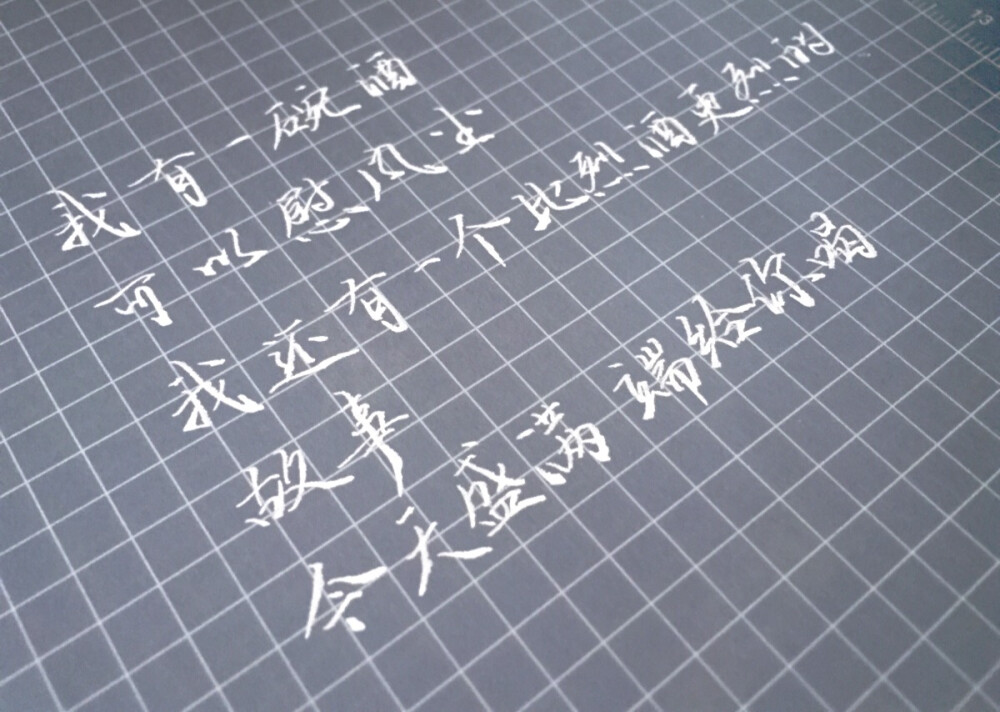 我有一碗酒
可以慰风尘
我还有一个比烈酒更烈的
故事
今天盛满 端给你喝
13